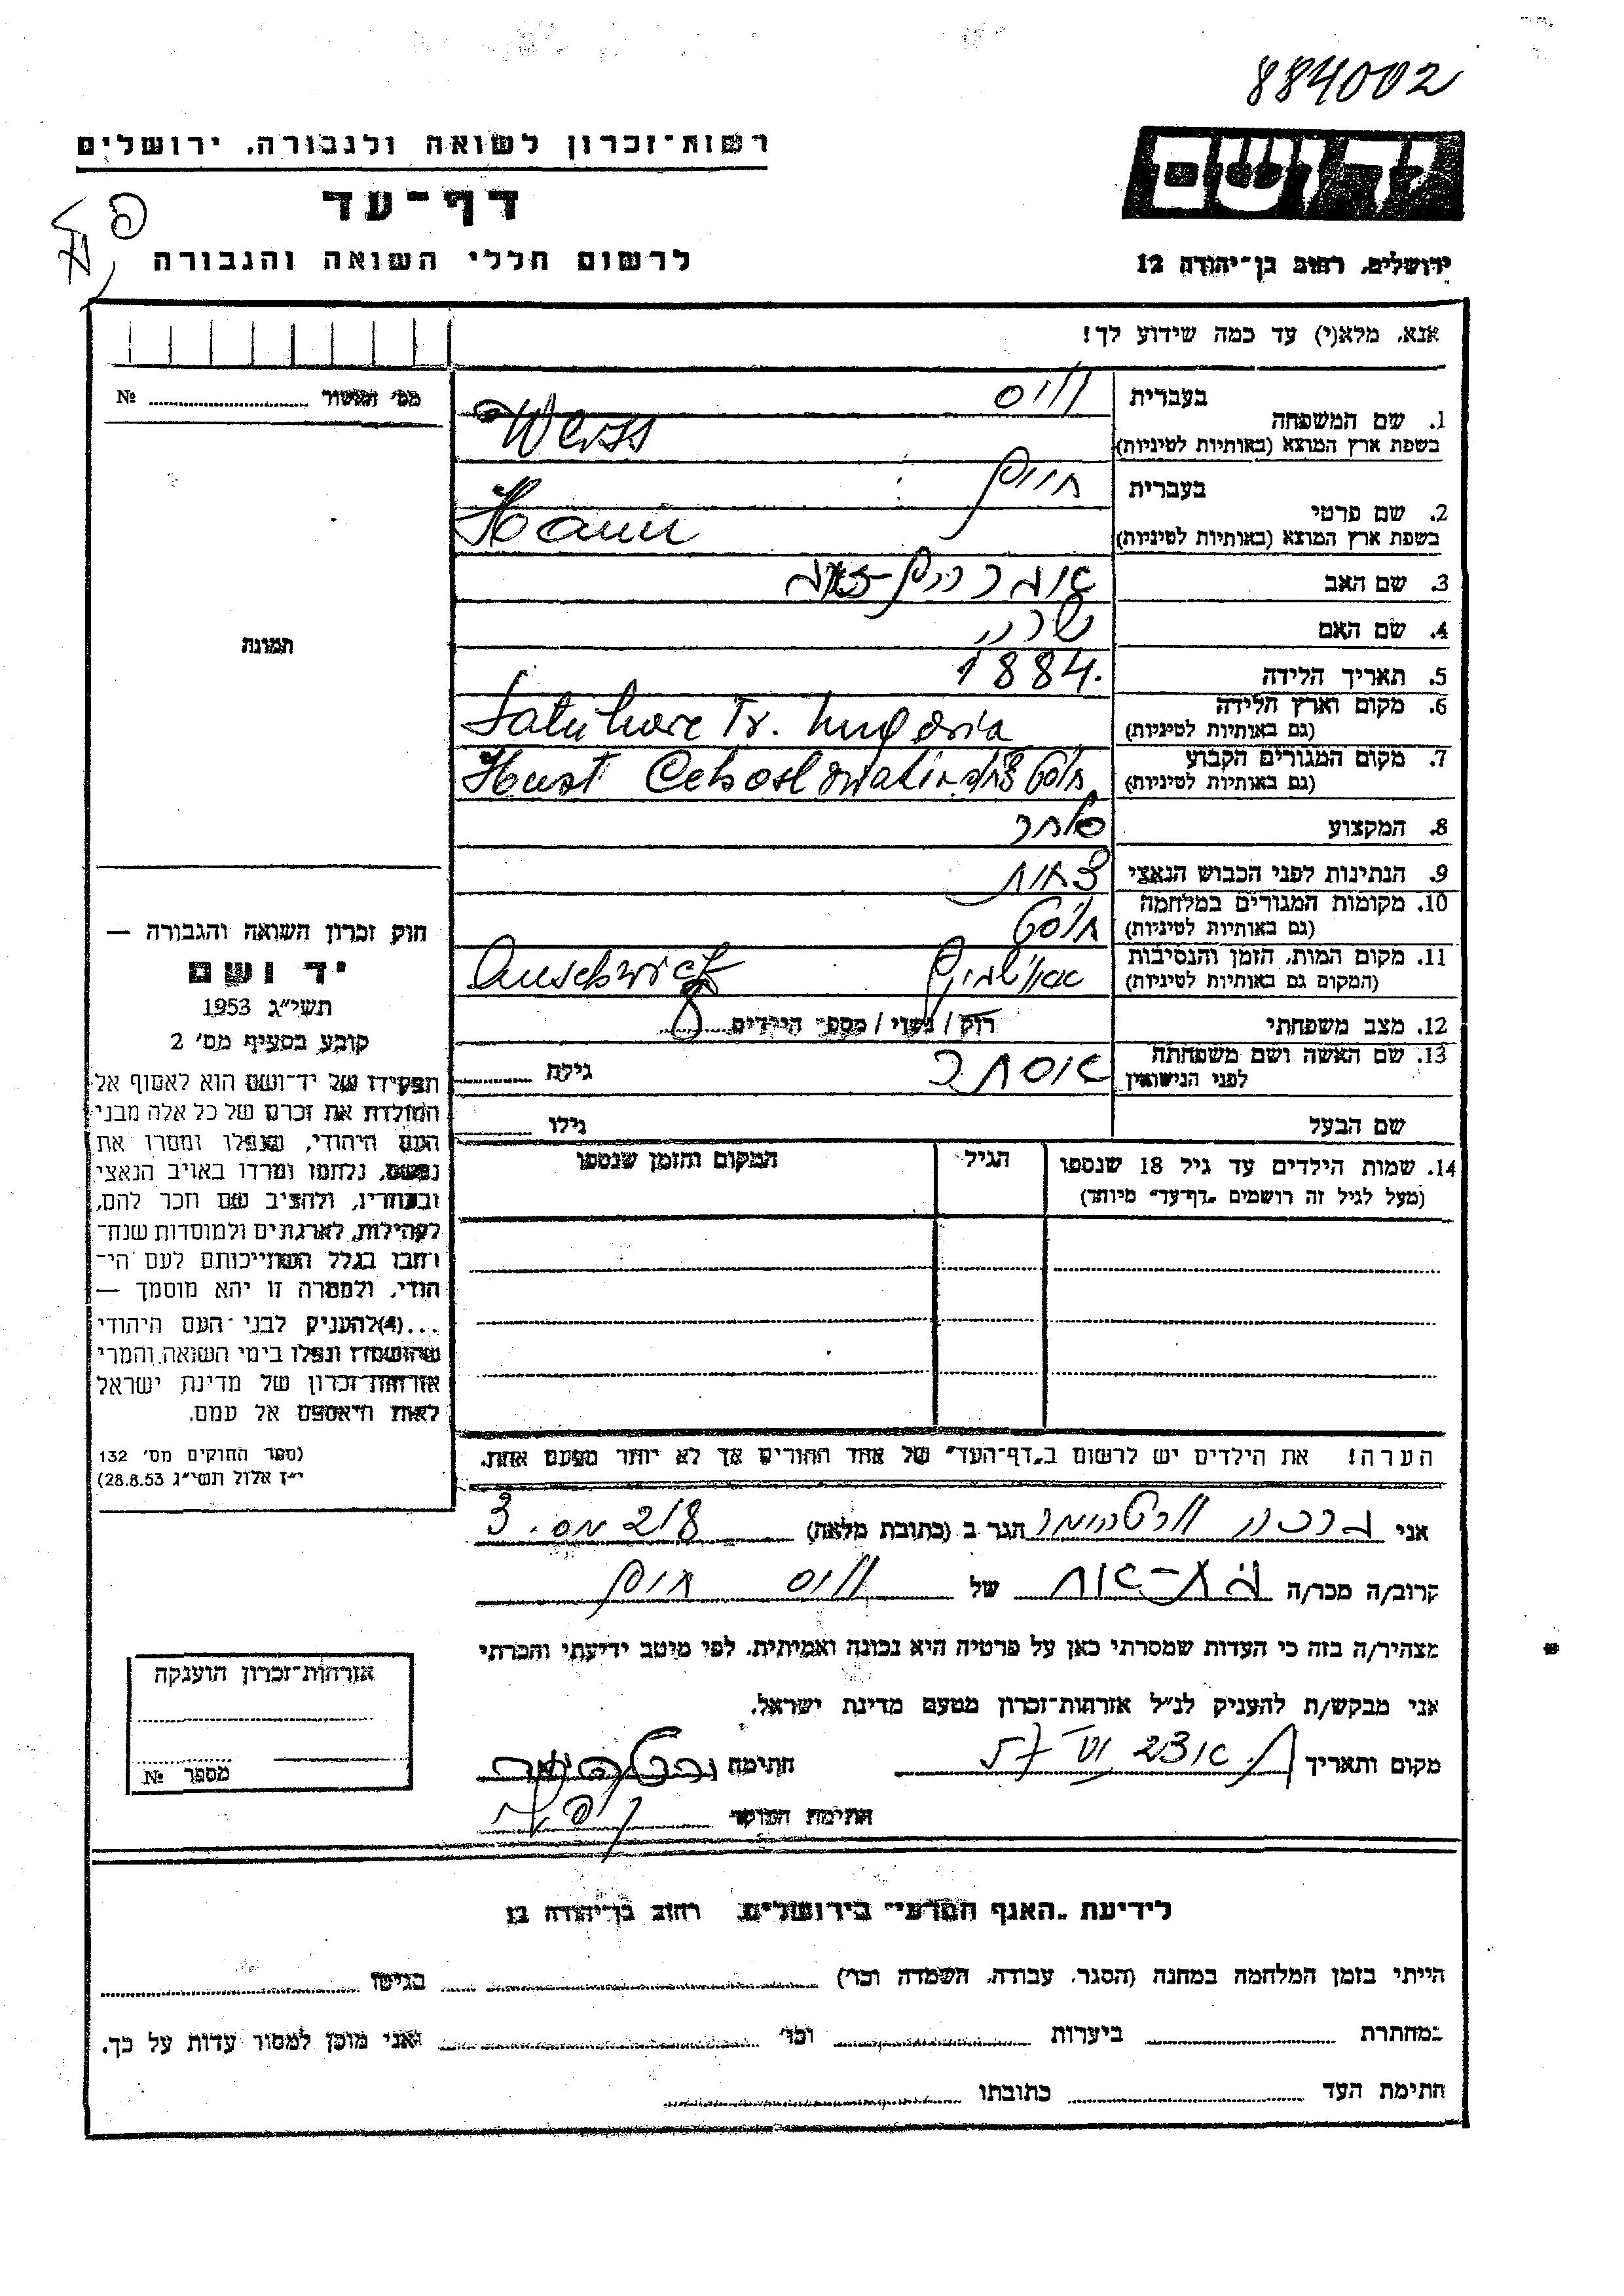 884002
רשות־זכרון לשואה ולגבורה, ירושלים
יד ושם
דף־עד
לרשום חללי השואה והגבורה
ירושלים, רחוב בן־יהודה 12
אנא, מלא(י) עד כמה שידוע לך!
מס׳ №
1. שם המשפחה
בעברית
ווייס
בשפת ארץ המוצא (באותיות לטיניות)
Weiss
2. שם פרטי
בעברית
חיים
בשפת ארץ המוצא (באותיות לטיניות)
3. שם האב
4. שם האם
5. תאריך הלידה 1884.
6. מקום וארץ הלידה
(גם באותיות לטיניות)
7. מקום המגורים הקבוע
(גם באותיות לטיניות)
Hust
8. המקצוע סוחר
9. הנתינות לפני הכבוש הנאצי
10. מקומות המגורים במלחמה
(גם באותיות לטיניות)
חוסט
11. מקום המות, הזמן והנסיבות
(המקום גם באותיות לטיניות)
12. מצב משפחתי
רוק / נשוי / מספר הילדים 8
13. שם האשה ושם משפחתה
לפני הנישואין
אסתר
גילה
שם הבעל
גילו
14. שמות הילדים עד גיל 18 שנספו
(מעל לגיל זה רושמים „דף־עד״ מיוחד)
הגיל
המקום והזמן שנספו
הערה! את הילדים יש לרשום ב„דף־העד״ של אחד ההורים אך לא יותר מפעם אחת.
תמונה
חוק זכרון השואה והגבורה —
יד ושם
תשי״ג 1953
קובע בסעיף מס׳ 2
תפקידו של יד־ושם הוא לאסוף אל
המולדת את זכרם של כל אלה מבני
העם היהודי, שנפלו ומסרו את
נפשם, נלחמו ומרדו באויב הנאצי
ובעוזריו, ולהציב שם וזכר להם,
לקהילות, לארגונים ולמוסדות שנח־
רבו בגלל השתייכותם לעם הי־
הודי, ולמטרה זו יהא מוסמך —
...(4) להעניק לבני העם היהודי
שהושמדו ונפלו בימי השואה והמרי
אזרחות־זכרון של מדינת ישראל
לאות היאספם אל עמם.
(ספר החוקים מס׳ 132
י״ז אלול תשי״ג 28.8.53)
אני הגר ב (כתובת מלאה)
קרוב/ה מכר/ה בת-אח של ווייס חיים
מצהיר/ה בזה כי העדות שמסרתי כאן על פרטיה היא נכונה ואמיתית, לפי מיטב ידיעתי והכרתי
אני מבקש/ת להעניק לנ״ל אזרחות־זכרון מטעם מדינת ישראל.
מקום ותאריך
חתימה
חתימת הפוקד
אזרחות־זכרון הוענקה
מספר №
לידיעת „האגף המדעי״ בירושלים, רחוב בן־יהודה 12
הייתי בזמן המלחמה במחנה (הסגר, עבודה, השמדה וכו׳) בגיטו
במחתרת ביערות וכו׳ ואני מוכן למסור עדות על כך.
חתימת העד כתובתו